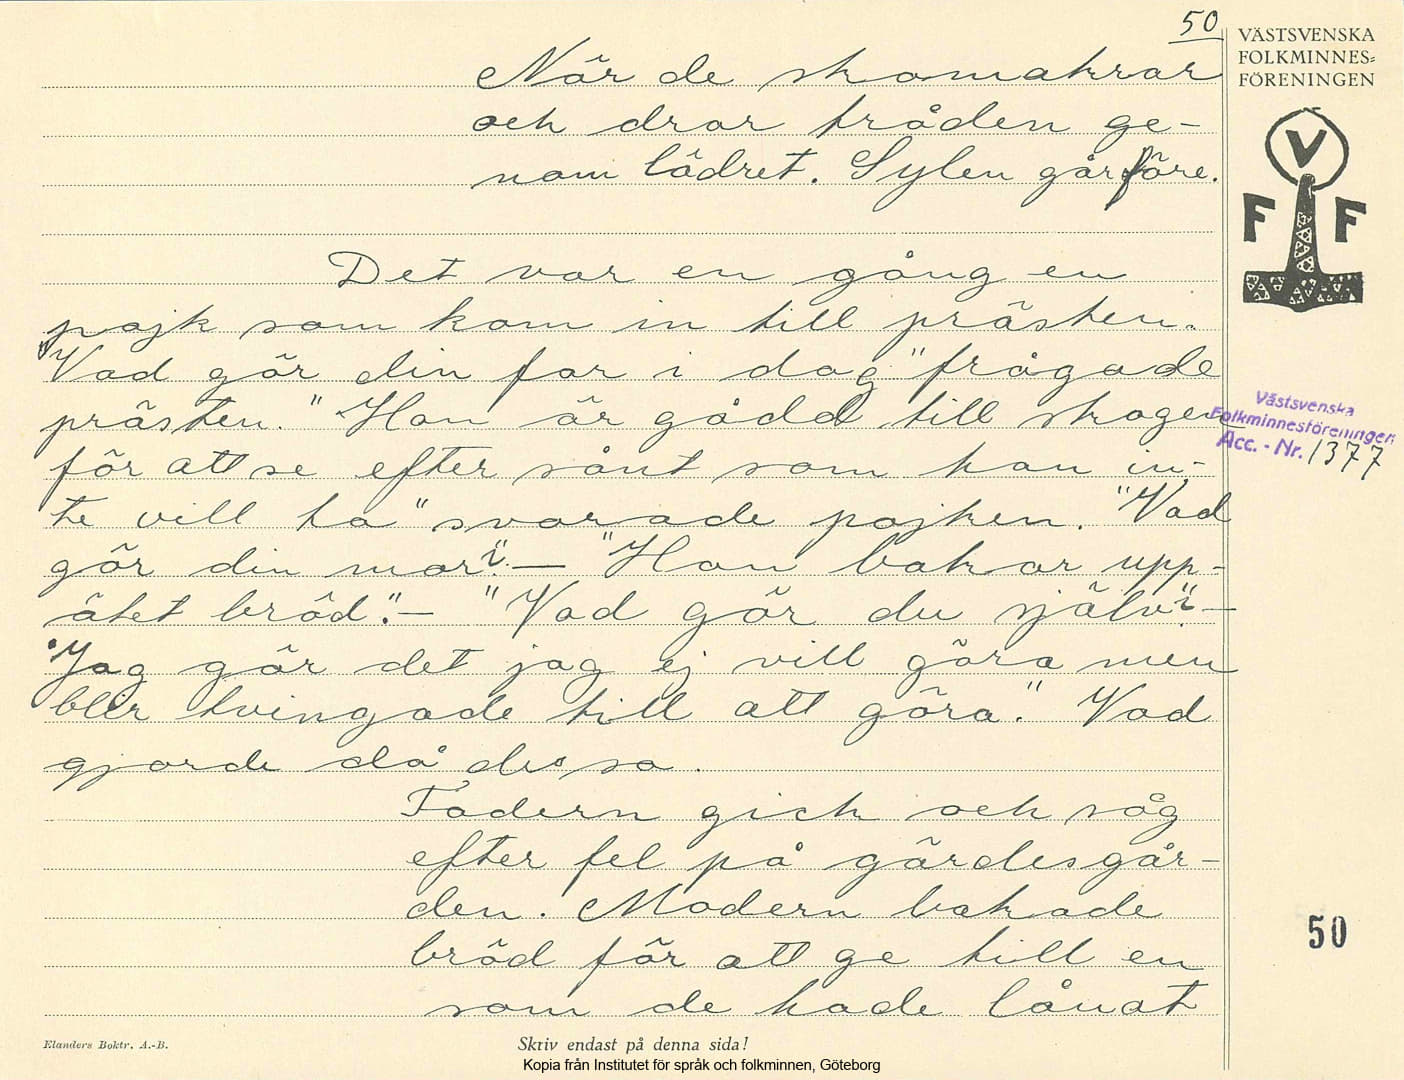 50
VÄSTSVENSKA
FOLKMINNES=
FÖRENINGEN
V
F F
När de skomakrar
och drar tråden ge-
nom lädret. Sylen går före.
Det var en gång en
pojk som kom in till prästen.
"Vad gör din far i dag" frågade
prästen. "Han är gådd till skogen
för att se efter sånt som han in-
te vill ha" svarade pojken. "Vad
gör din mor"? — "Hon bakar upp-
ätet bröd". — "Vad gör du själv"? —
"Jag gör det jag ej vill göra men
blir tvingade till att göra". Vad
gjorde då dessa.
Fadern gick och såg
efter fel på gärdesgår-
den. Modern bakade
bröd för att ge till en
som de hade lånat
Västsvenska
Folkminnesföreningen
Acc. - Nr. 1377
50
Elanders Boktr. A.-B.
Skriv endast på denna sida!
Kopia från Institutet för språk och folkminnen, Göteborg